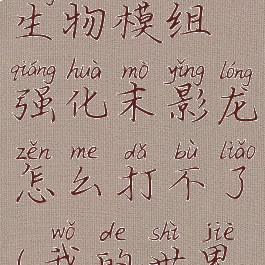 生物模组
qiáng huà mò yǐng lóng
强化末影龙
zěn me dǎ bù liǎo
怎么打不了
wǒ de shì jiè
(我的世界